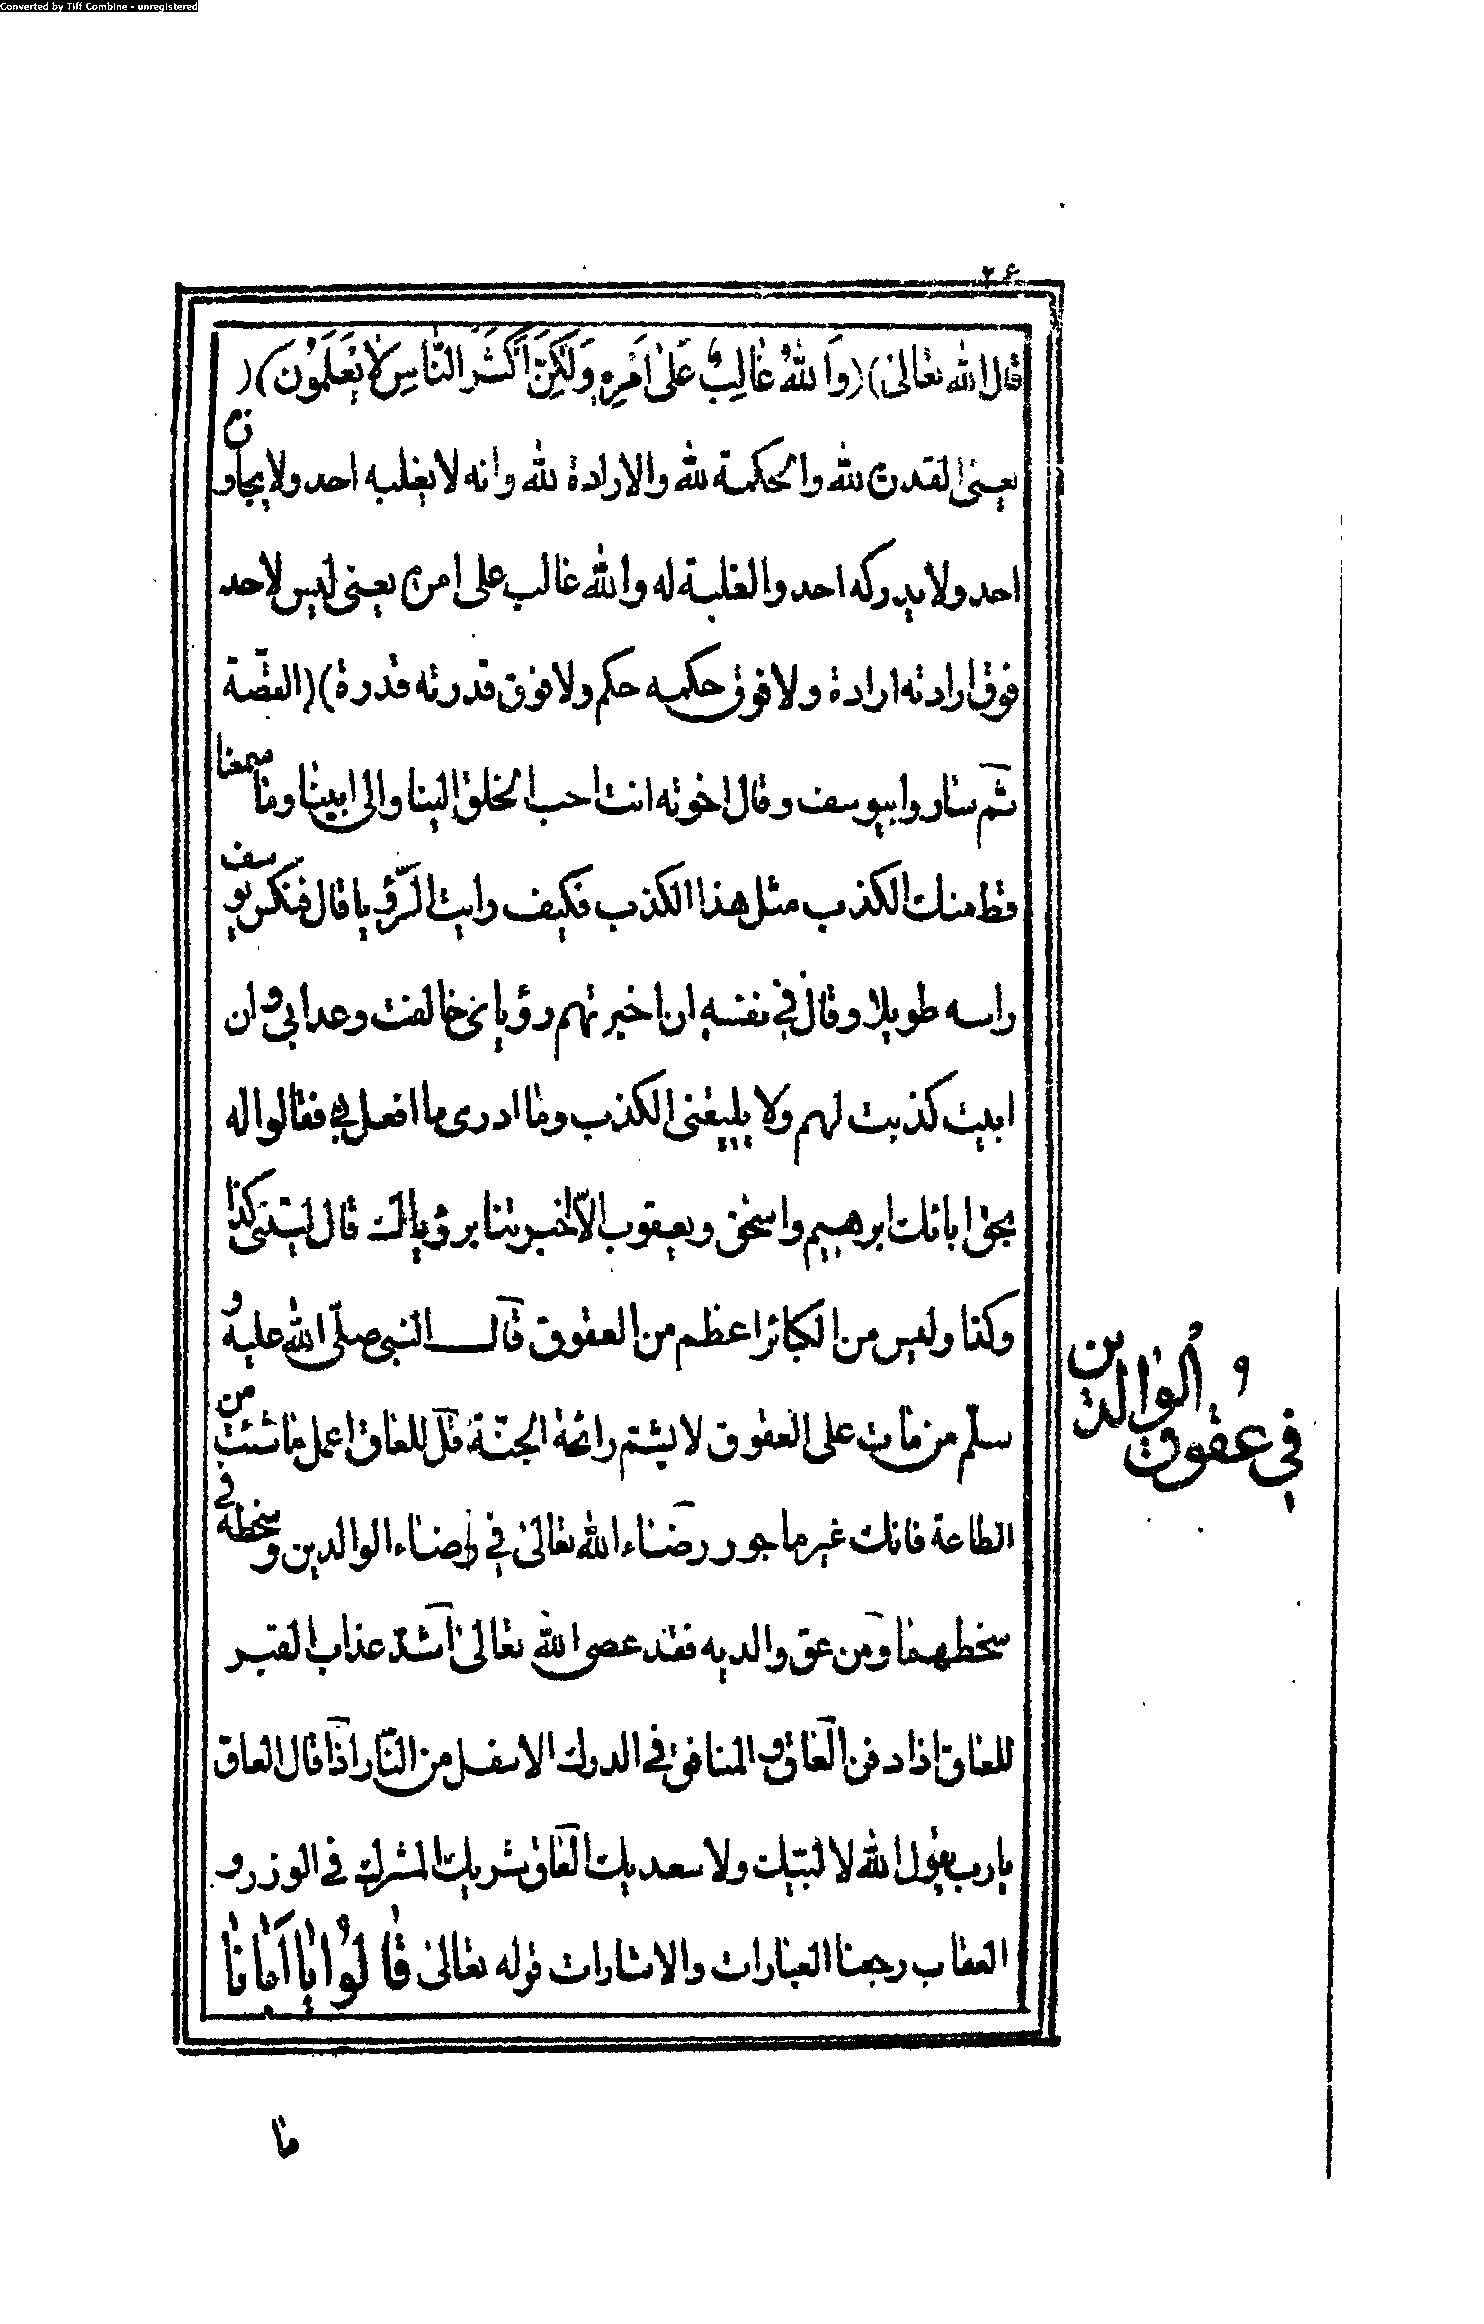 Converted by Tiff Combine - unregistered
٢٤
قال الله تعالى)(وَاللّٰهُ غَالِبٌ عَلىٰ اَمْرِهٖ وَلٰكِنَّ اَكْثَرَ النَّاسِ لَا يَعْلَمُونَ)(
يعنى القدرة لله والحكمة لله والارادة لله وانه لا يغلبه احد ولا يجاوزه
احد ولا يدركه احد والغلبة له والله غالب على امره يعنى ليس لاحد
فوق ارادته ارادة ولا فوق حكمه حكم ولا فوق قدرته قدرة)(القصّة
ثم ساروا بيوسف وقال اخوته انت احب الخلق الينا والى ابينا وما سمعنا
قط منك الكذب مثل هذا الكذب فكيف رايت الرّؤيا قال فنكس يوسف
راسه طويلا وقال فى نفسه ان اخبرتهم رؤياى خالفت وعد ابى وان
ابيت كذبت لهم ولا يليق بى الكذب وما ادرى ما افعل فقالوا له
بحق ابائك ابرهيم واسحق ويعقوب الّا اخبرتنا برؤياك قال ليتنى كذا
وكذا وليس من الكبائر اعظم من العقوق قال النبى صلّى الله عليه و
سلّم من مات على العقوق لا يشتم رائحة الجنّة قل للعاق اعمل ما شئت من
الطاعة فانك غير ماجور رضاء الله تعالى فى رضاء الوالدين وسخطه فى
سخطهما ومن عق والديه فقد عصى الله تعالى اشدّ عذاب القبر
للعاق اذا دفن العاق والمنافق فى الدرك الاسفل من النّار اذا قال العاق
يارب يقول الله لا لبّيك ولا سعديك العاق شريك المشرك فى الوزر و
العقاب رجعنا العبارات والاشارات قوله تعالى قَالُوْا يَا اَبَانَا
فى عقوق الوالدين
ما